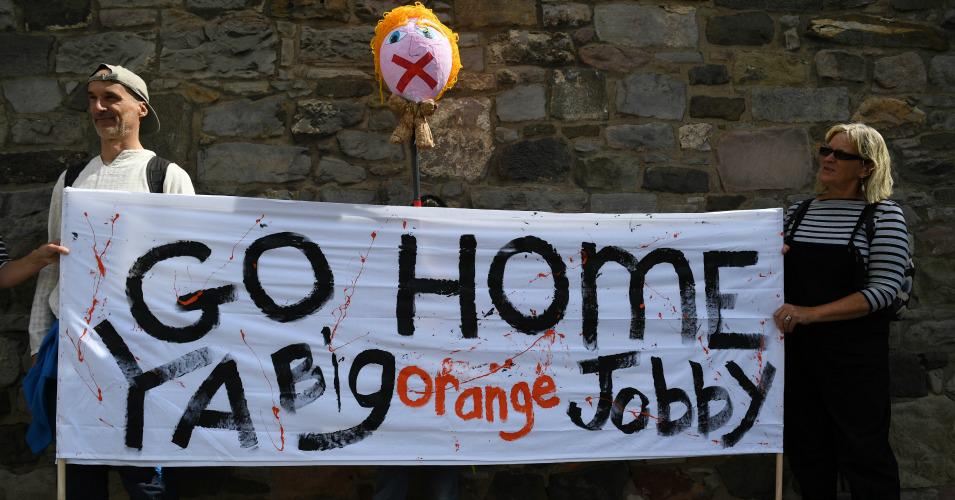 GO HOME
YA Big orange Jobby